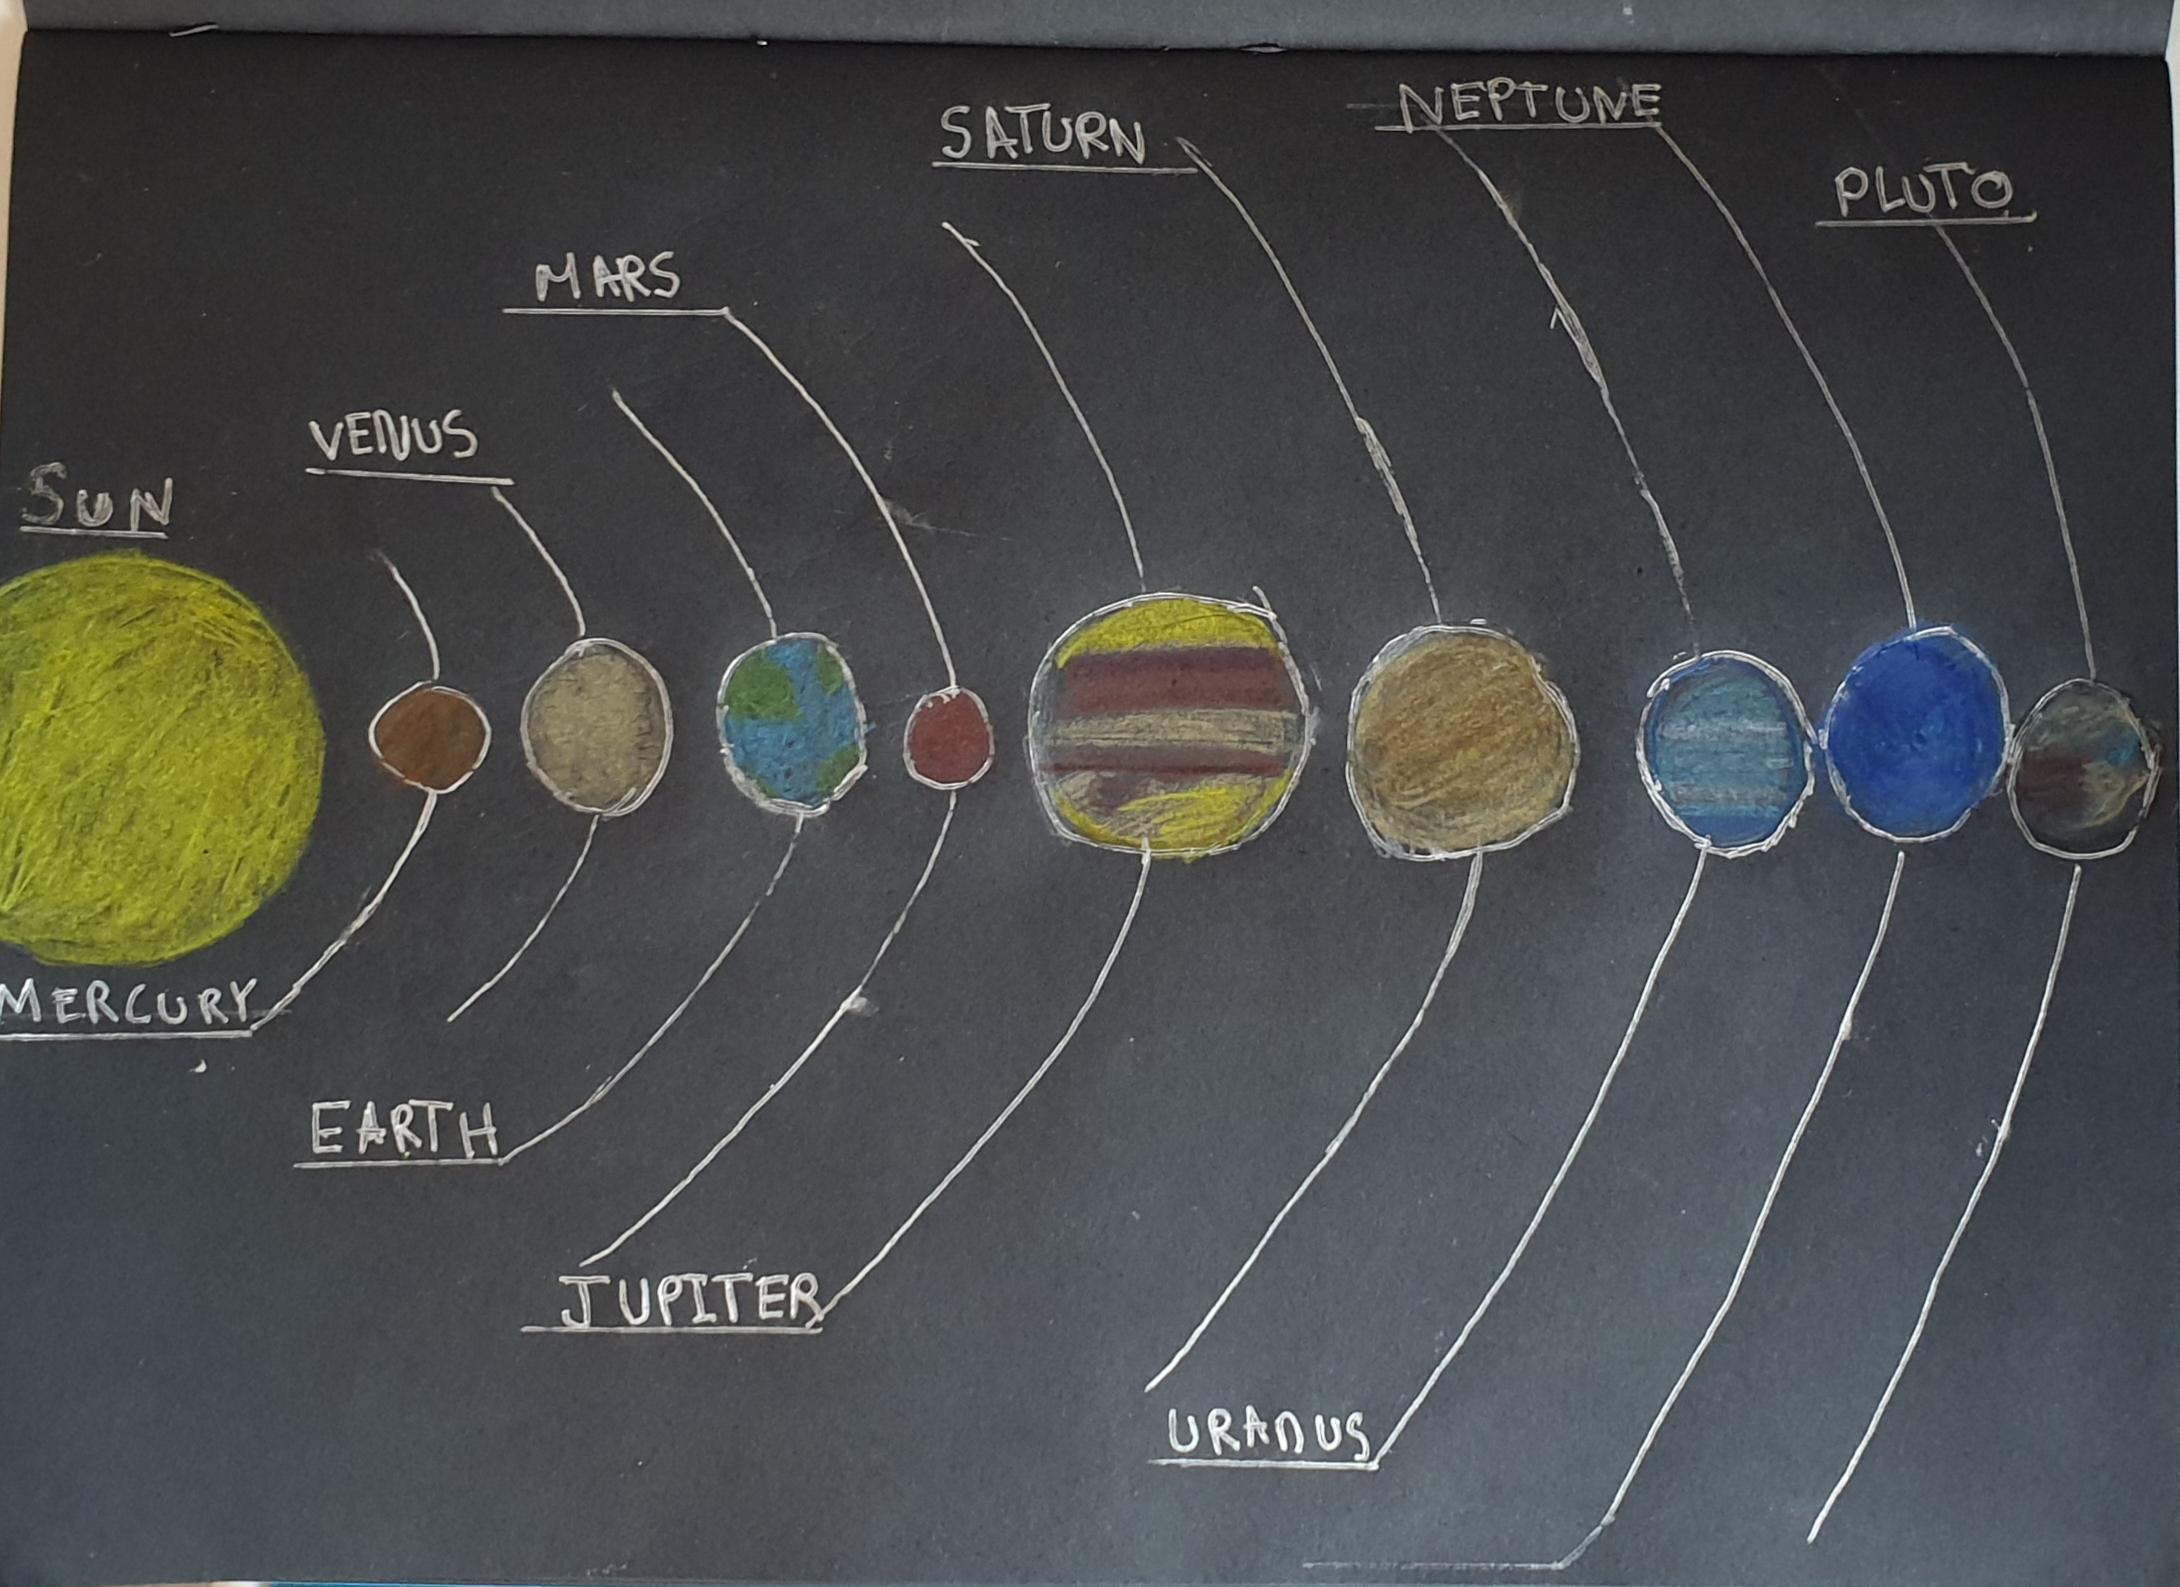 SUN
MERCURY
VENUS
EARTH
MARS
JUPITER
SATURN
URANUS
NEPTUNE
PLUTO